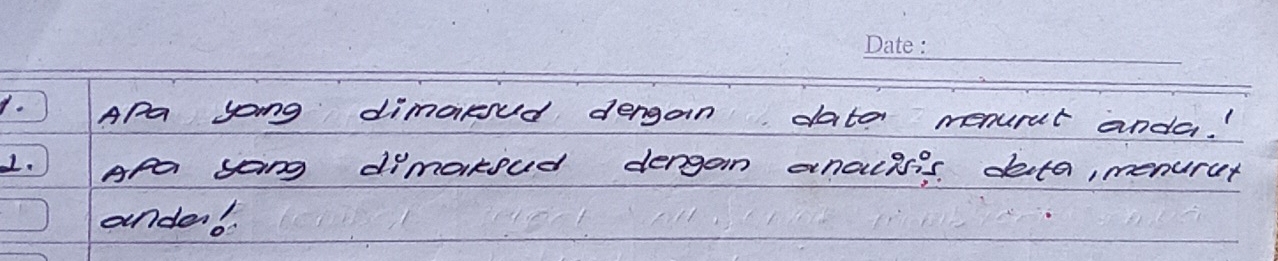 Date :
1. Apa yang dimaksud dengan data menurut anda!
2. Apa yang dimaksud dengan analisis data, menurut
anda!